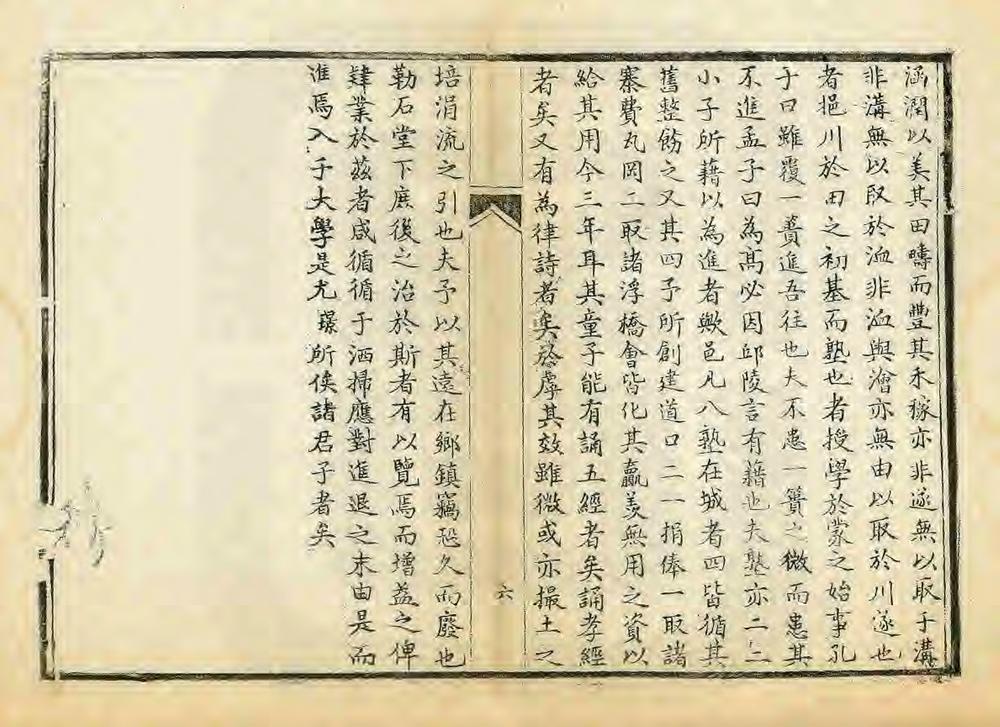 涵潤以美其田疇而豐其禾稼亦非遂無以取于溝
非溝無以取於洫非洫與澮亦無由以取於川遂也
者挹川於田之初基而塾也者授學於蒙之始事孔
子曰雖覆一蕢進吾往也夫不患一簣之微而患其
不進孟子曰為髙必因邱陵言有藉也夫塾亦二三
小子所藉以為進者歟邑凡八塾在城者四皆循其
舊整飭之又其四予所創建道口二一捐俸一取諸
寨費瓦岡二取諸浮橋會皆化其贏羨無用之資以
給其用今三年耳其童子能有誦五經者矣誦孝經
者矣又有為律詩者矣於虖其效雖微或亦撮土之
六
培涓流之引也夫予以其遠在鄉鎮竊恐久而廢也
勒石堂下庶後之治於斯者有以覽焉而增益之俾
肄業於茲者咸循循于洒掃應對進退之末由是而
進焉入于大學是尤璟所俟諸君子者矣